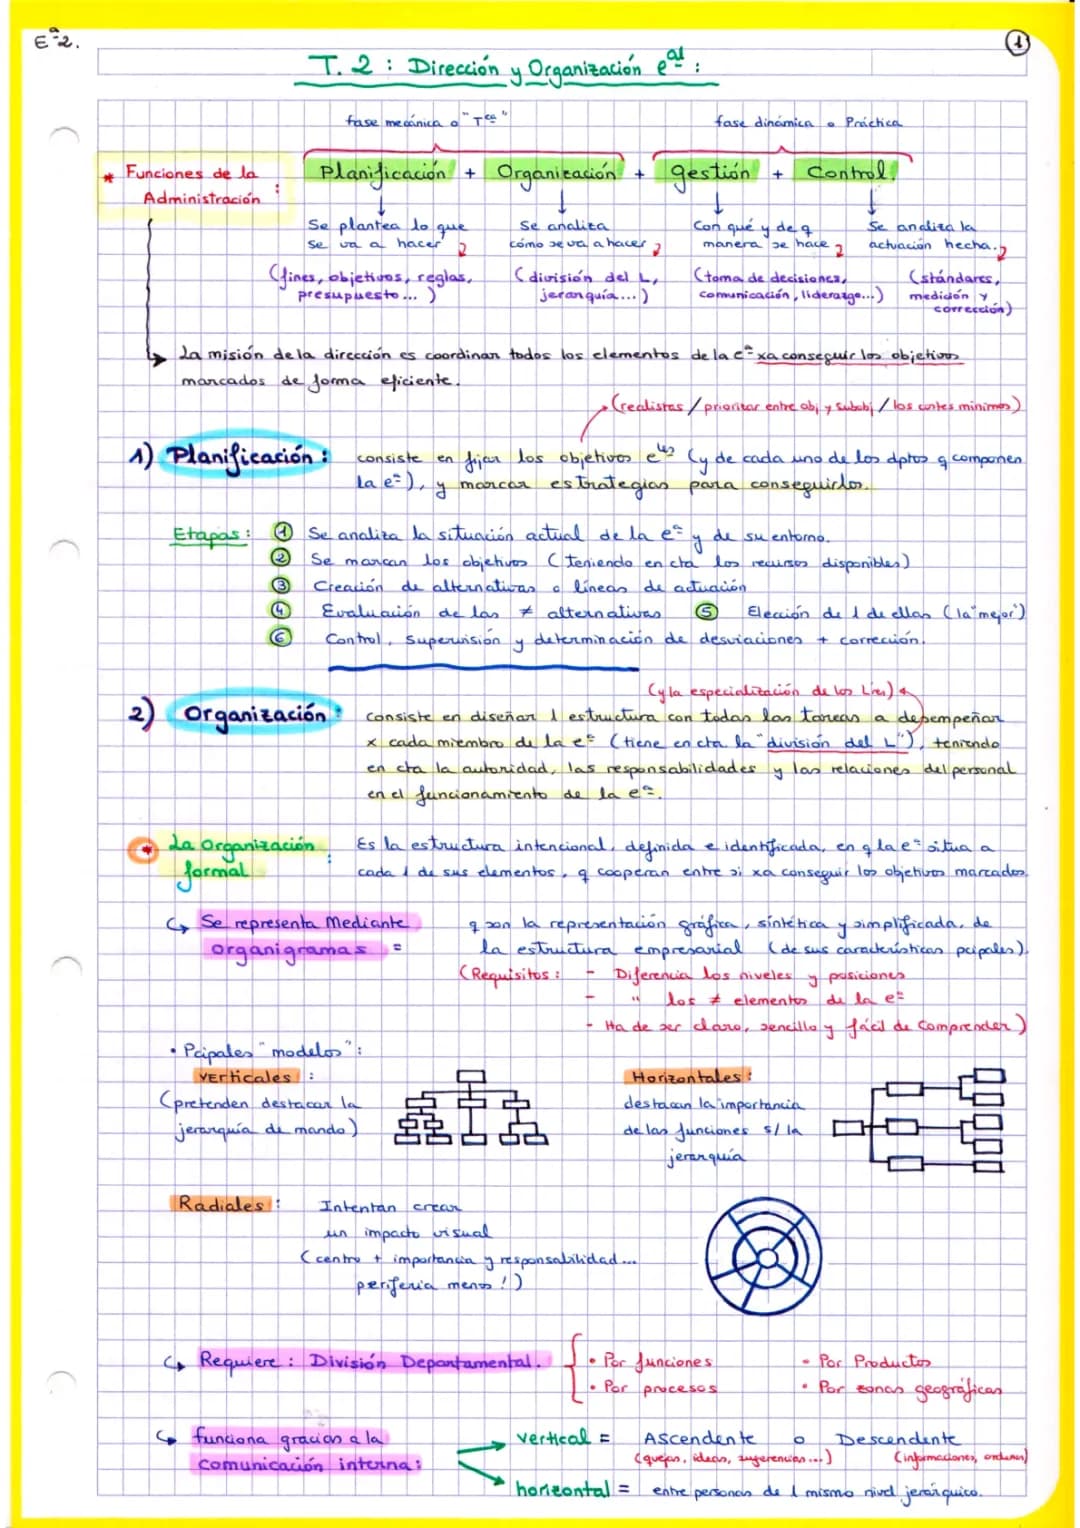 Eª2.
1
T. 2 : Dirección y Organización eal :
fase mecánica o "Tca"
fase dinámica o Práctica
* Funciones de la Administración :
Planificación + Organización + gestión + Control.
Se plantea lo que se va a hacer
Se analiza cómo se va a hacer
Con qué y de q manera se hace
Se analiza la actuación hecha.
(fines, objetivos, reglas, presupuesto...)
(división del L, jerarquía...)
(toma de decisiones, comunicación, liderazgo...)
(stándares, medición y corrección)
La misión de la dirección es coordinar todos los elementos de la eª xa conseguir los objetivos
marcados de forma eficiente.
(realistas / priorizar entre obj y subobj / los costes mínimos)
1) Planificación : consiste en fijar los objetivos eles (y de cada uno de los dptos q componen
la eª), y marcar estrategias para conseguirlos.
Etapas : 1 Se analiza la situación actual de la eª y de su entorno.
2 Se marcan los objetivos (teniendo en cta los recursos disponibles)
3 Creación de alternativas o líneas de actuación
4 Evaluación de las ≠ alternativas 5 Elección de 1 de ellas (la "mejor")
6 Control, supervisión y determinación de desviaciones + corrección.
(y la especialización de los Lres)
2) Organización : consiste en diseñar 1 estructura con todas las tareas a desempeñar
x cada miembro de la eª (tiene en cta la "división del L"), teniendo
en cta la autoridad, las responsabilidades y las relaciones del personal
en el funcionamiento de la eª.
* La Organización formal : Es la estructura intencional, definida e identificada, en q la eª situa a
cada 1 de sus elementos, q cooperan entre si xa conseguir los objetivos marcados.
Se representa Mediante organigramas = q son la representación gráfica, sintética y simplificada, de
la estructura empresarial (de sus características pcipales).
(Requisitos : - Diferencia los niveles y posiciones
- " los ≠ elementos de la eª
- Ha de ser claro, sencillo y fácil de comprender)
• Pcipales "modelos" :
VERticales :
(pretenden destacar la
jerarquía de mando)
Horizontales :
destacan la importancia
de las funciones s/ la
jerarquía
Radiales : Intentan crear
un impacto visual
(centro + importancia y responsabilidad...
periferia menos!)
Requiere : División Departamental.
• Por funciones
• Por procesos
• Por Productos
• Por zonas geográficas
funciona gracias a la
comunicación interna :
vertical = Ascendente o Descendente
(quejas, ideas, sugerencias...) (informaciones, ordenes)
horizontal = entre personas de 1 mismo nivel jerárquico.